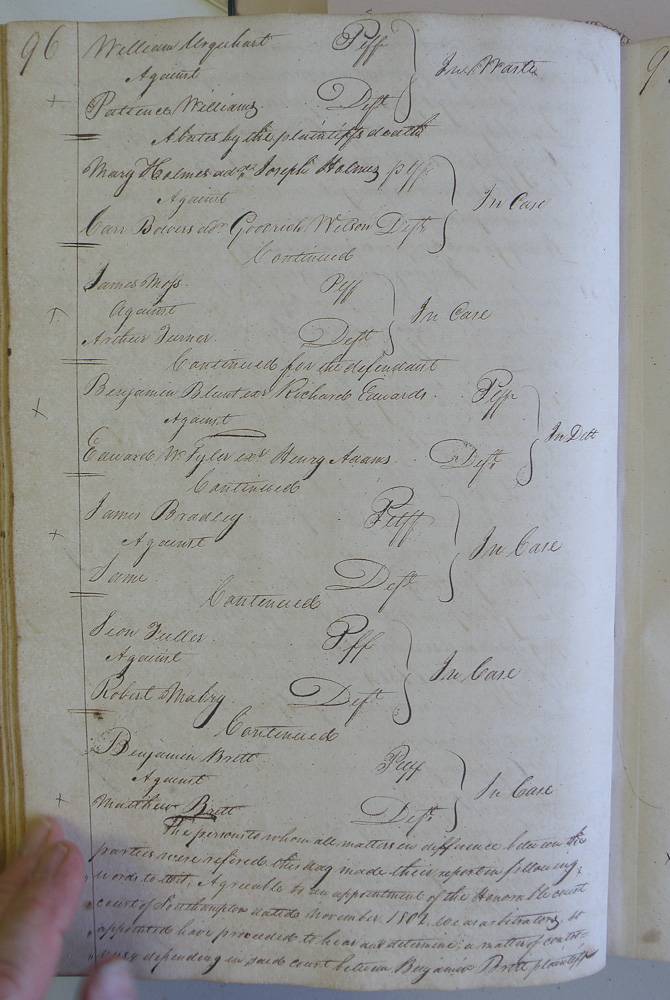 96
William Urquhart Plff
Against In Waste
Patience Williams Deft
Abates by the plaintiffs death
Mary Holmes adx Joseph Holmes plff
Against In Case
Carr Bowers adr Goodrich Wilson Deft
Continued
James Moss Plff
Against In Case
Arthur Turner Deft
Continued for the defendant
Benjamin Blunt exr Richard Edwards Plff
Against In Debt
Edward W. Tyler exr Henry Adams Deft
Continued
James Bradley Plff
Against In Case
Same Deft
Continued
Plff
Against In Case
Robert Mabry Deft
Continued
Benjamin Brett Plff
Against In Case
Matthew Brett Deft
The persons to whom all matters in difference between the
parties were refered this day made their report in following
words to wit, Agreeable to an appointment of the Honorable court
court of Southampton dated November 1802 we as arbitrators
appointed have proceeded to hear and determine a matter of contro-
versy depending in said court between Benjamin Brett plaintiff